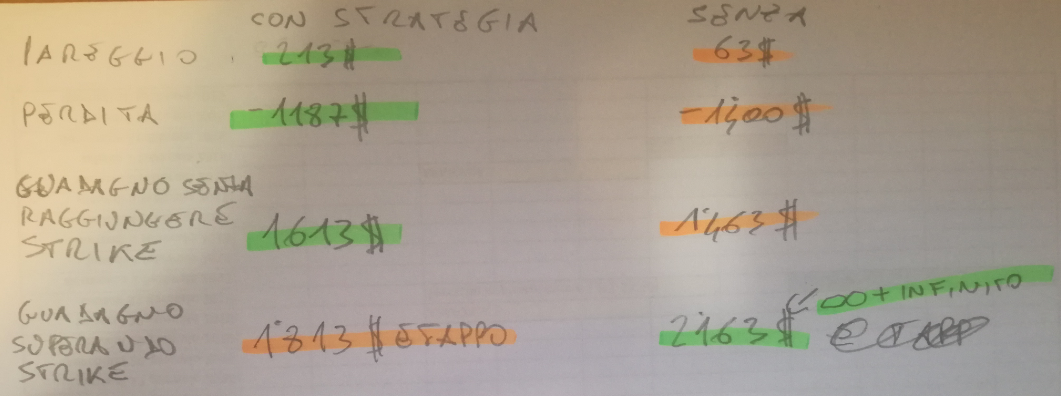 CON STRATEGIA SENZA
PAREGGIO 213$ 63$
PERDITA -1187$ -1,00$
GUADAGNO SENZA
RAGGIUNGERE
STRIKE 1613$ 1,463$
∞ + INFINITO
GUADAGNO
SUPERANDO 1'813$ E TAPPO 2163$
STRIKE